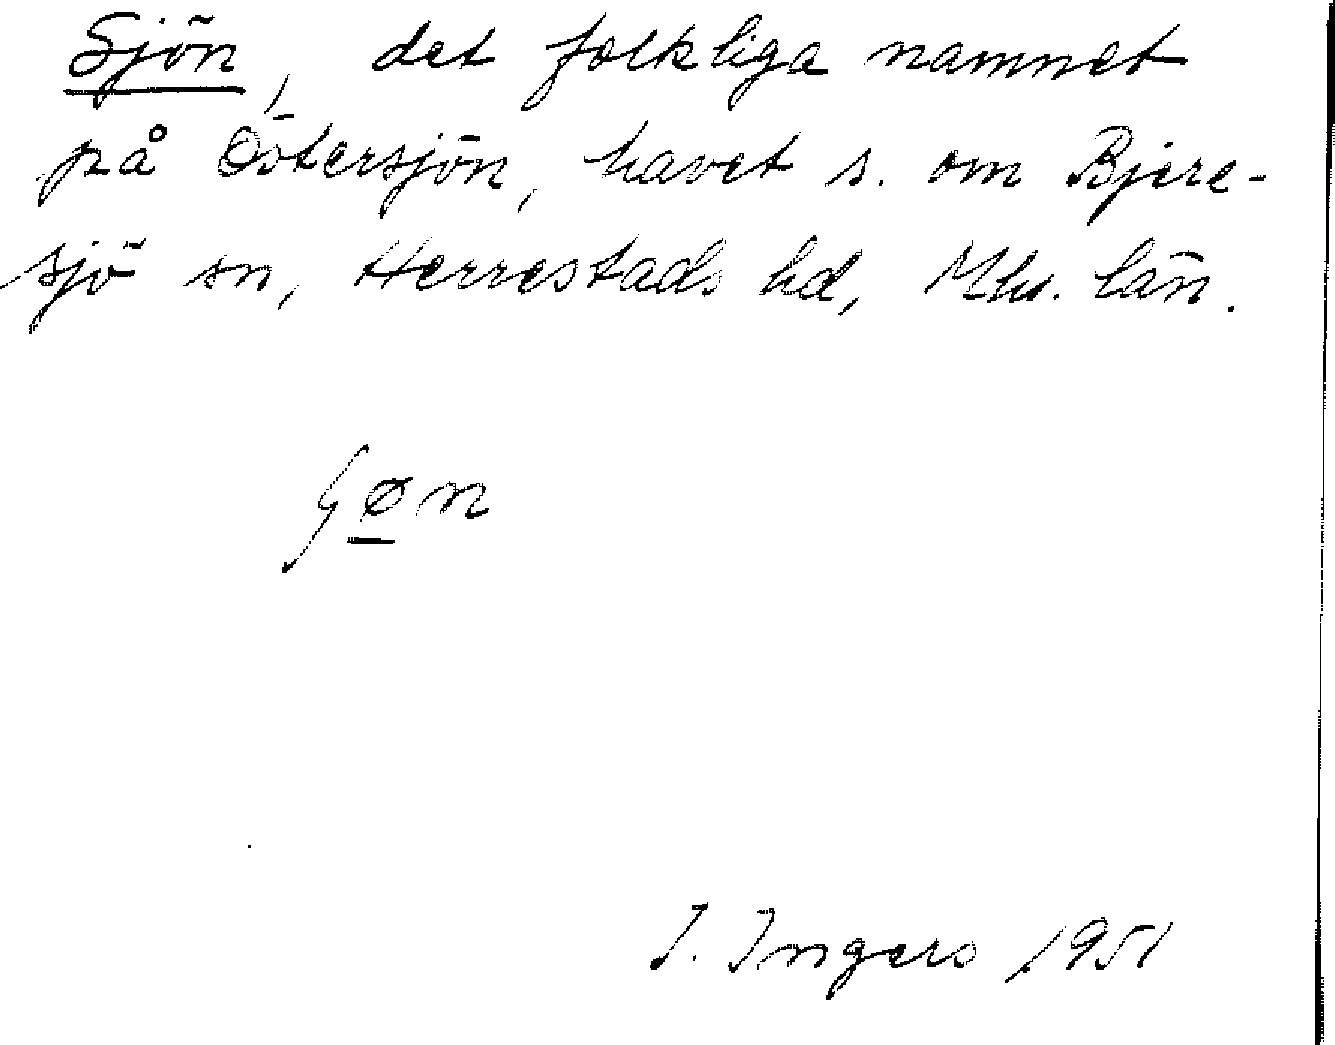 Sjön, det folkliga namnet
på Östersjön, havet s. om Bjere-
sjö sn, Herrestads hd, Mhs. län.
ʃøn
I. Ingers 1951